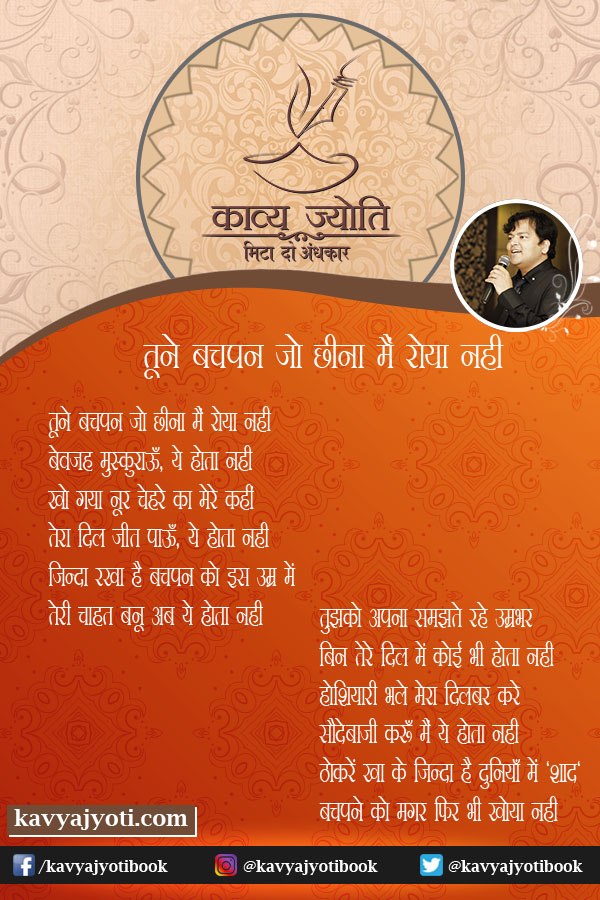 काव्य ज्योति
मिटा दो अंधकार
तूने बचपन जो छीना मैं रोया नही
तूने बचपन जो छीना मैं रोया नही
बेवजह मुस्कुराऊँ, ये होता नही
खो गया नूर चेहरे का मेरे कही
तेरा दिल जीत पाऊँ, ये होता नही
जिन्दा रखा है बचपन को इस उम्र में
तेरी चाहत बनू अब ये होता नही
तुझको अपना समझते रहे उम्रभर
बिन तेरे दिल में कोई भी होता नही
होशियारी भले मेरा दिलबर करे
सौदेबाजी करूँ मैं ये होता नही
ठोकरें खा के जिन्दा है दुनियाँ में ‘शाद‘
बचपने को मगर फिर भी खोया नही
kavyajyoti.com
/kavyajyotibook
@kavyajyotibook
@kavyajyotibook